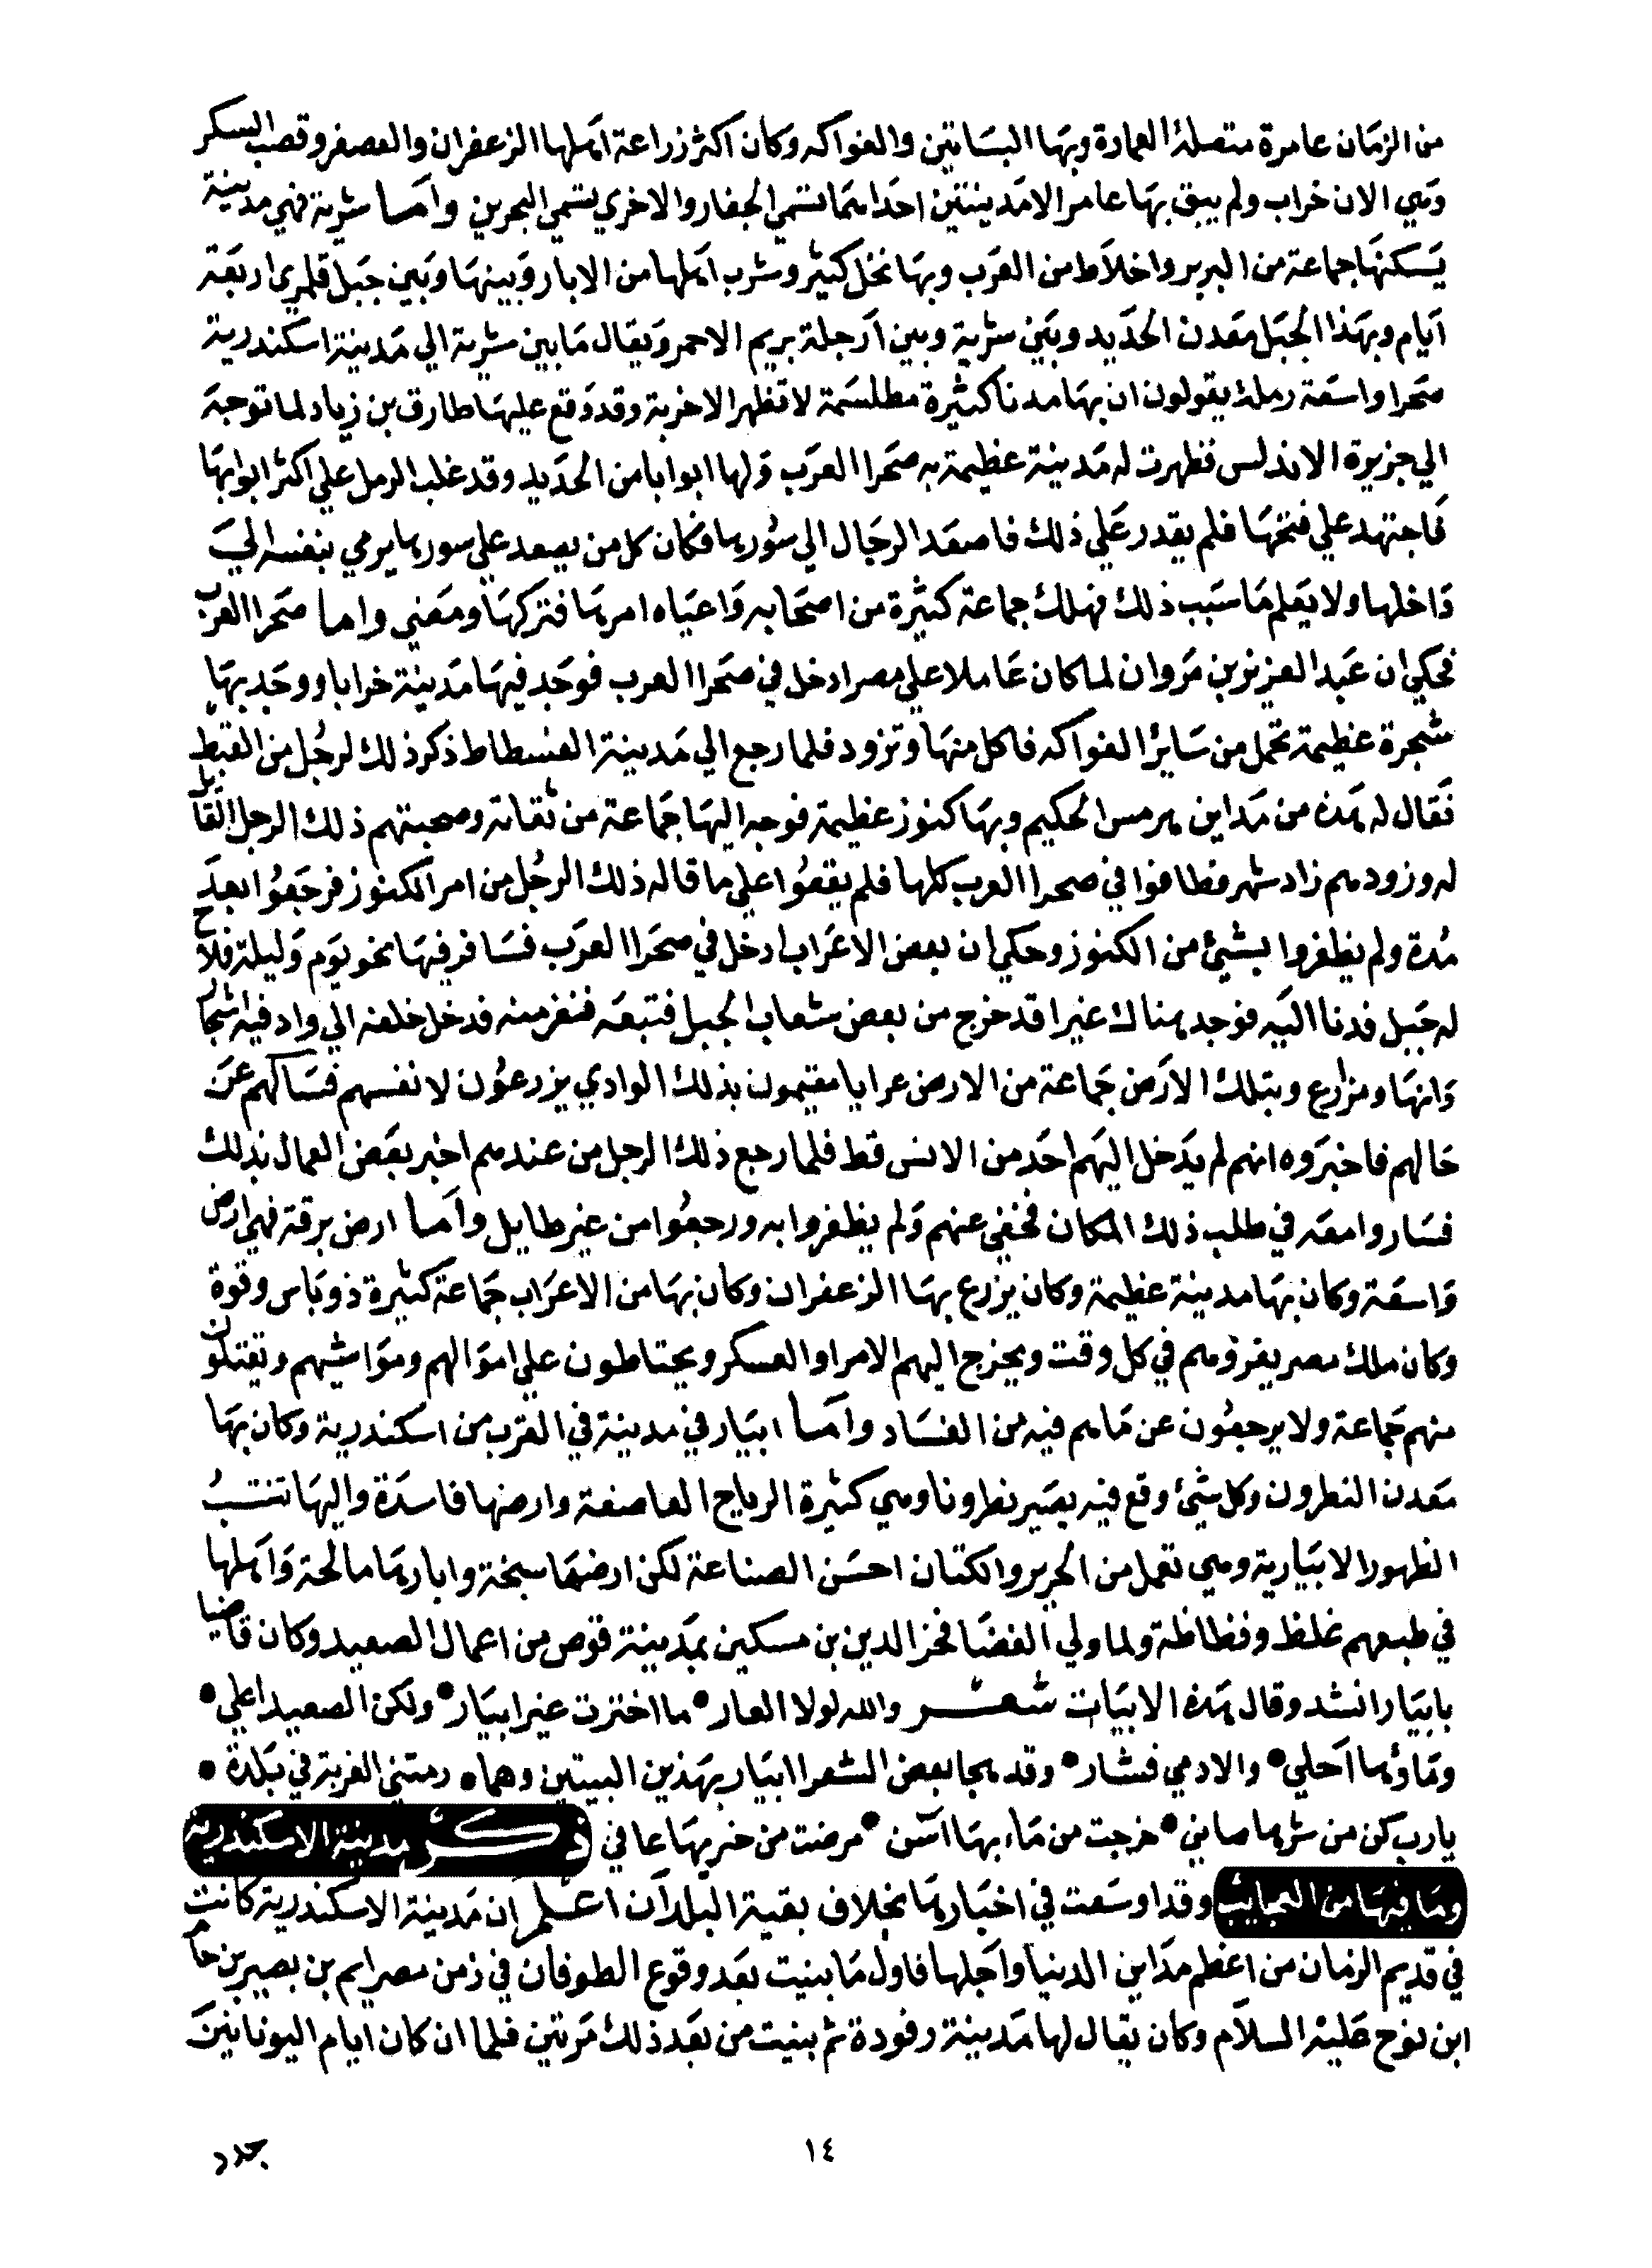 من الزمان عامرة متصلة العمارة وبها البساتين والفواكه وكان اكثر زراعة اهلها الزعفران والعصفر وقصب السكر
وهي الان خراب ولم يبق بها عامر الا مدينتين احداهما تسمي الجفار والاخري تسمي البحرين واما شرية فهي مدينة
يسكنها جماعة من البربر واخلاط من العرب وبها نخل كثير وشرب اهلها من الابار وبينها وبين جبل قلمري اربعة
ايام وبهذا الجبل معدن الحديد وبين شرية وبين ارجلة بريم الاحمر ويقال ما بين شرية الي مدينة اسكندرية
صحرا واسعة رملة يقولون ان بها مدنا كثيرة مطلسمة لا تظهر الا خربة وقد وقع عليها طارق بن زياد لما توجه
الي جزيرة الاندلس فظهرت له مدينة عظيمة به صحرا العرب ولها ابوابا من الحديد وقد غلب الرمل علي اكثر ابوابها
فاجتهد علي فتحها فلم يقدر علي ذلك فاصعد الرجال الي سورها فكان كل من يصعد علي سورها يرمي بنفسه الي
داخلها ولا يعلم ما سبب ذلك فهلك جماعة كثيرة من اصحابه واعياه امرها فتركها ومضي واما صحرا العرب
فحكي ان عبد العزيز بن مروان لما كان عاملا علي مصر ادخل في صحرا العرب فوجد فيها مدينة خرابا ووجد بها
شجرة عظيمة تحمل من ساير الفواكه فاكل منها وتزود فلما رجع الي مدينة الفسطاط ذكر ذلك لرجل من القبط
فقال له هذه من مداين هرمس الحكيم وبها كنوز عظيمة فوجه اليها جماعة من ثقاته وصحبتهم ذلك الرجل القايل
له وزودهم زاد شهر فطافوا في صحرا العرب كلها فلم يقعوا علي ما قاله ذلك الرجل من امر الكنوز فرجعوا بعد
مدة ولم يظفروا بشيئ من الكنوز وحكي ان بعض الاعراب ادخل في صحرا العرب فسافر فيها نحو يوم وليلة فلاح
له جبل فدنا اليه فوجد هناك عنيرا قد خرج من بعض شعاب الجبل فتبعه فنفر منه فدخل خلفه الي واد فيه اشجار
وانها ومزارع وبتلك الارض جماعة من الارض عرايا مقيمون بذلك الوادي يزرعون لانفسهم فسالهم عن
حالهم فاخبروه انهم لم يدخل اليهم احد من الانس قط فلما رجع ذلك الرجل من عندهم اخبر بعض العمال بذلك
فساروا معه في طلب ذلك المكان فخفي عنهم ولم يظفروا به ورجعوا من غير طايل واما ارض برقة فهي ارض
واسعة وكان بها مدينة عظيمة وكان يزرع بها الزعفران وكان بها من الاعراب جماعة كثيرة ذو باس وقوة
وكان ملك مصر يغزوهم في كل وقت ويخرج اليهم الامرا والعسكر ويحتاطون علي اموالهم ومواشيهم ويقتلون
منهم جماعة ولا يرجعون عن ما هم فيه من الفساد واما ابيار في مدينة في القرب من اسكندرية وكان بها
معدن النطرون وكل شيئ وقع فيه يصير نطرونا وهي كثيرة الرياح العاصفة وارضها فاسدة واليها تنتسب
الظهور الابيارية وهي تعمل من الحرير والكتان احسن الصناعة لكن ارضها سبخة وابارها مالحة واهلها
في طبعهم غلظ وفظاظة ولما ولي القضا فخر الدين بن مسكين بمدينة قوص من اعمال الصعيد وكان قاضيا
بابيار انشد وقال هذه الابيات شعر والله لولا العار • ما اخترت غير ابيار • ولكن الصعيد اعلي •
وماؤها احلي • والادمي فشار • وقد هجا بعض الشعرا ابيار بهذين البيتين وهما • رمتني الغربة في بلدة •
يارب كن من شرها صايني • خرجت من ماء بها اسن • مرضت من خبزها عافي ذكر مدينة الاسكندرية
وما فيها من العجايب وقد اوسعت في اخبارها بخلاف بقية البلدان اعلم ان مدينة الاسكندرية كانت
في قديم الزمان من اعظم مداين الدنيا واجلها فاول ما بنيت بعد وقوع الطوفان في زمن مصرايم بن بصير بن حام
ابن نوح عليه السلام وكان يقال لها مدينة رفودة ثم بنيت من بعد ذلك مرتين فلما ان كان ايام اليونانين
١٤
جدد